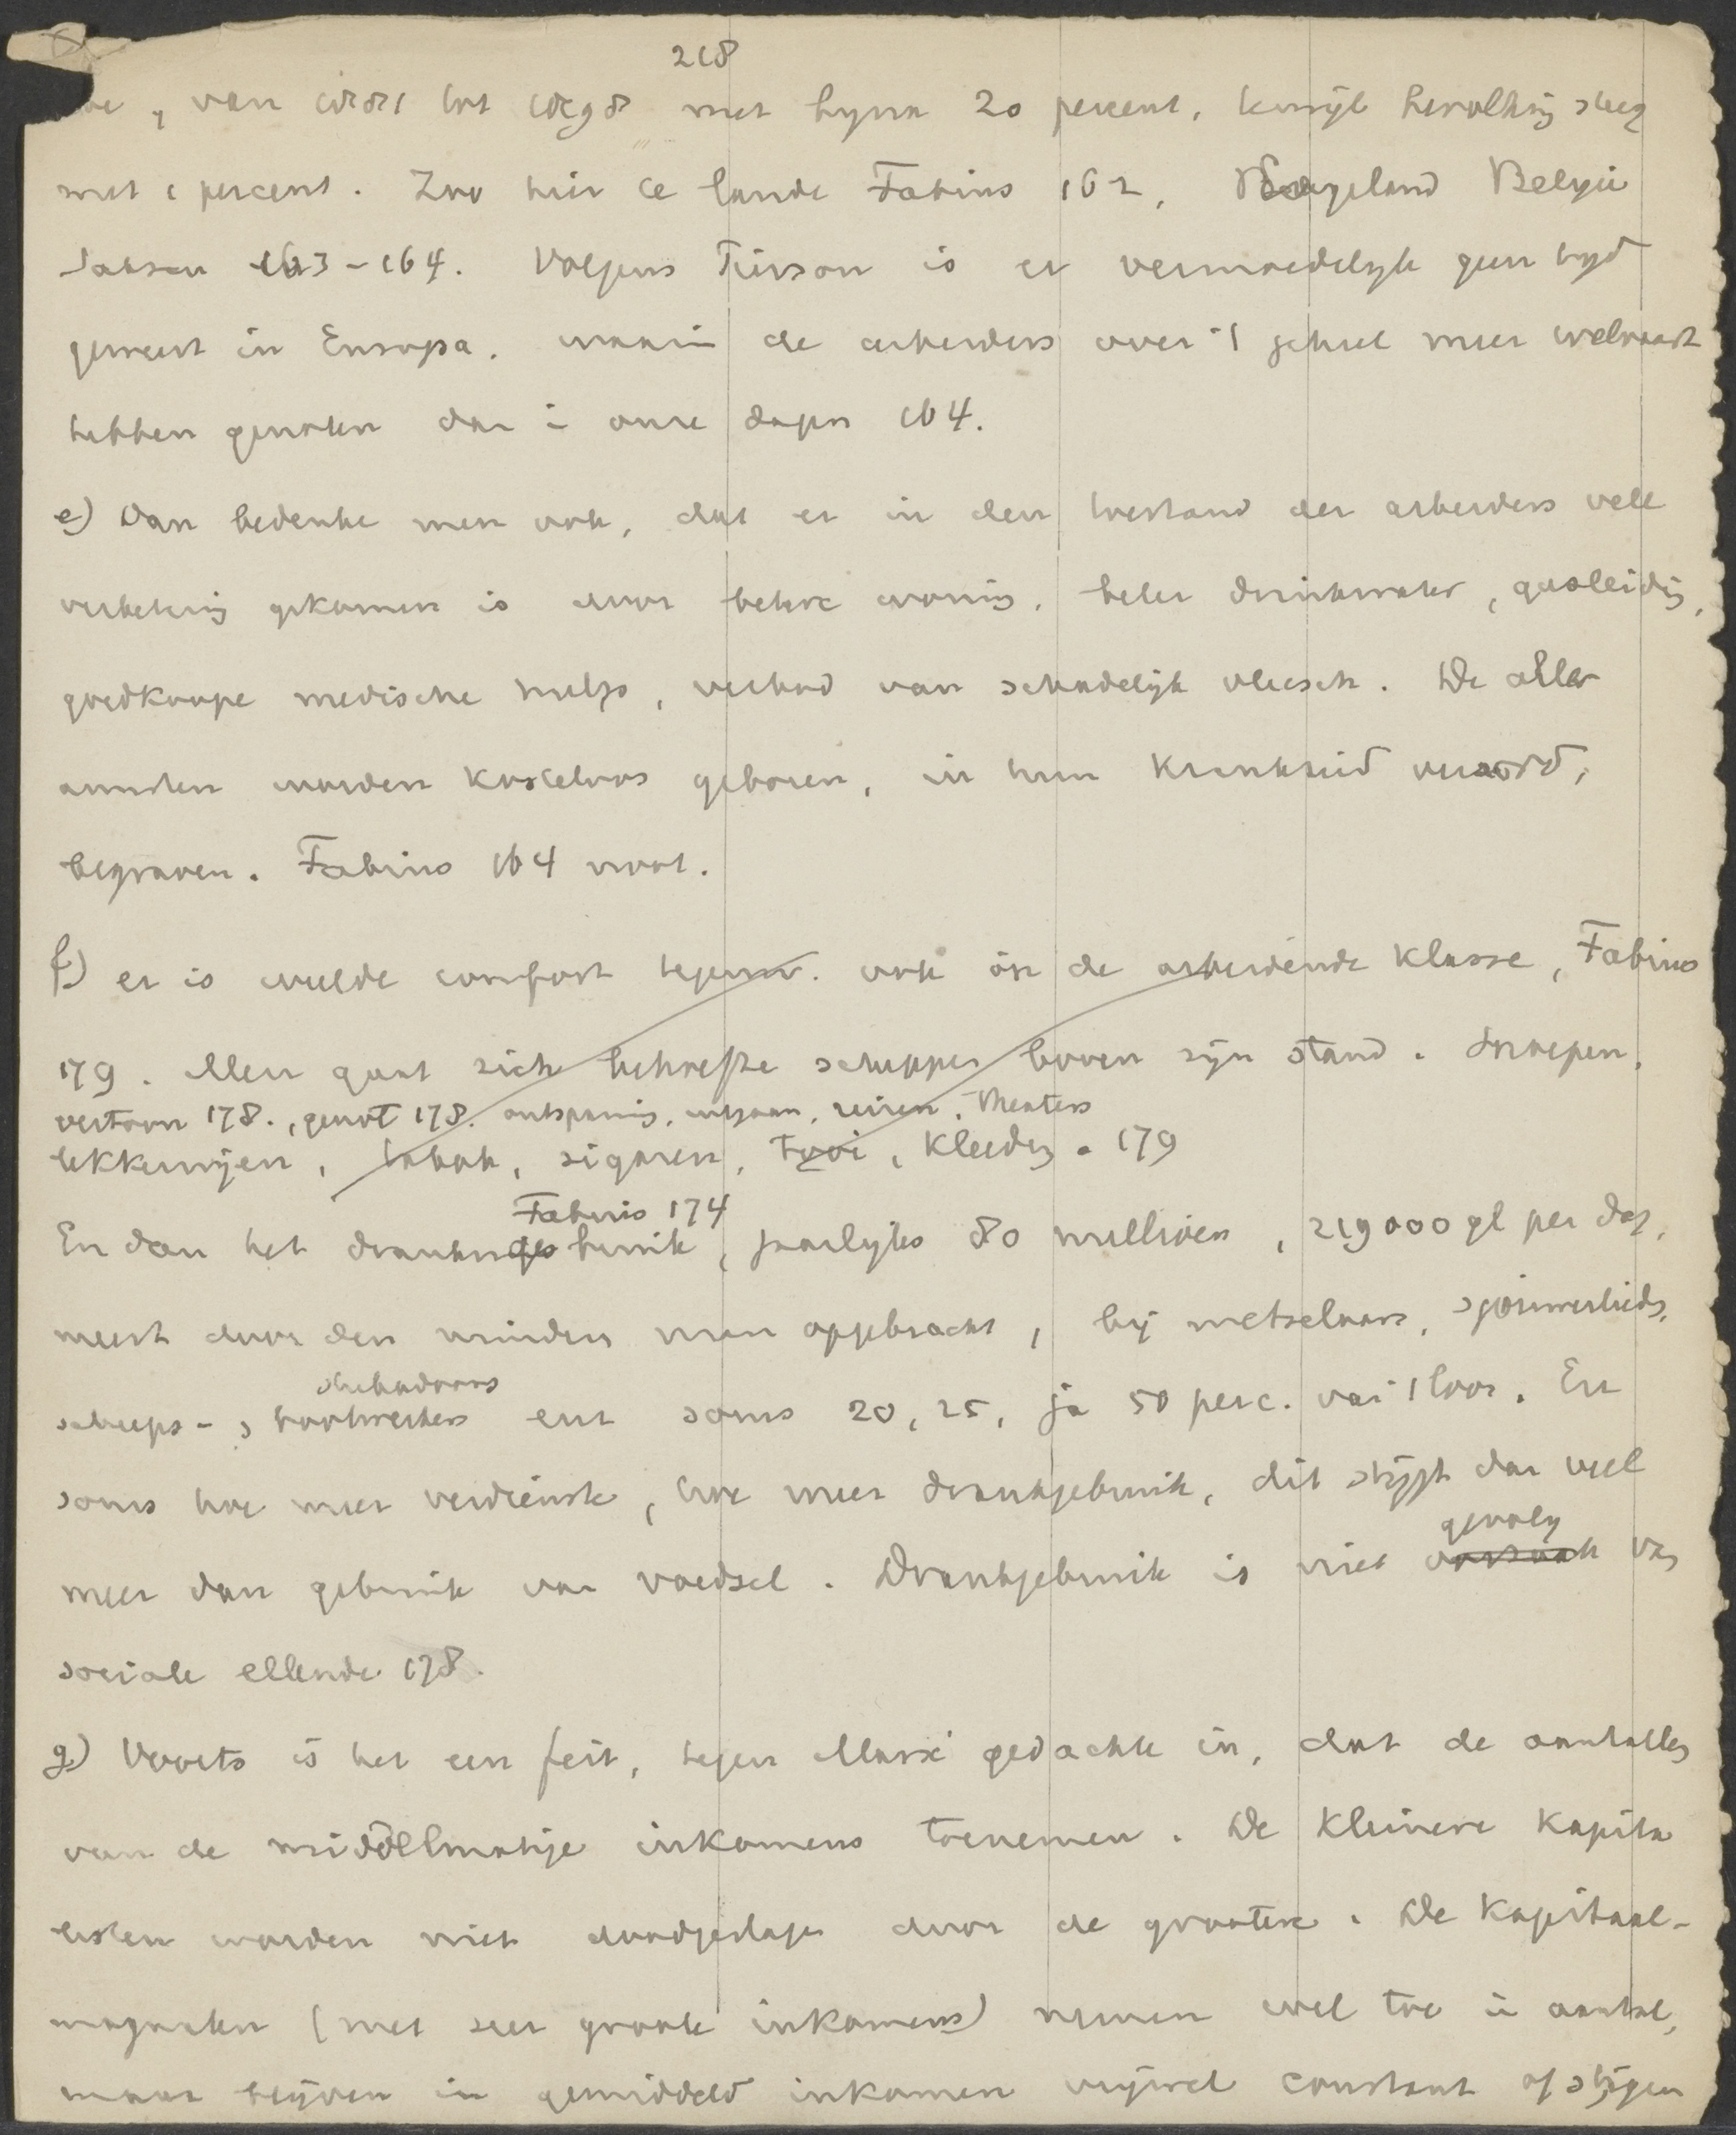 218
toe, van 1881 tot 1898 met byna 20 percent, terwijl bevolking steeg
met 1 percent. Zoo hier te lande Fabius 162, Engeland Belgie
Saksen 163-164. Volgens Pierson is er vermoedelyk geen tyd
geweest in Europa, waarin de arbeiders over 't geheel meer welvaart
hebben genoten dan in onze dagen 164.
e) Dan bedenke men ook, dat er in den toestand der arbeiders vele
verbetering gekomen is door betere woning, beter drinkwater, gasleiding,
goedkoope medische hulp, verbod van schadelijk vleesch. De aller
armsten worden kosteloos geboren, in hun krankheid verzorgd,
begraven. Fabius 164 noot.
f) er is weelde comfort tegenw. ook in de arbeidende klasse, Fabius
179. Men gaat zich behoeften scheppen boven zijn stand. Snoepen,
vertoon 178., genot 178. ontspanning, uitgaan, reizen, theaters
lekkernijen, tabak, sigaren, tooi, kleeding. 179
Fabius 174
En dan het drankgebruik, jaarlyks 80 millioen, 219000 gl per dag,
meest door den minder man opgebracht, bij metselaars, spoorwerkers,
scheeps-, bootwerkers enz soms 20, 25, ja 50 perc. van 't loon. En
soms hoe meer verdienste, hoe meer drankgebruik, dit stijgt dan veel
gevolg
meer dan gebruik van voedsel. Drankgebruik is niet oorzaak van
sociale ellende 178.
g) Voorts is het een feit, tegen Marx' gedachte in, dat de aantallen
van de middelmatige inkomens toenemen. De kleinere kapita
listen worden niet doodgeslagen door de grootere. De kapitaal-
magnaten (met zeer groote inkomens) nemen wel toe in aantal,
maar blijven in gemiddeld inkomen vrijwel constant of stijgen